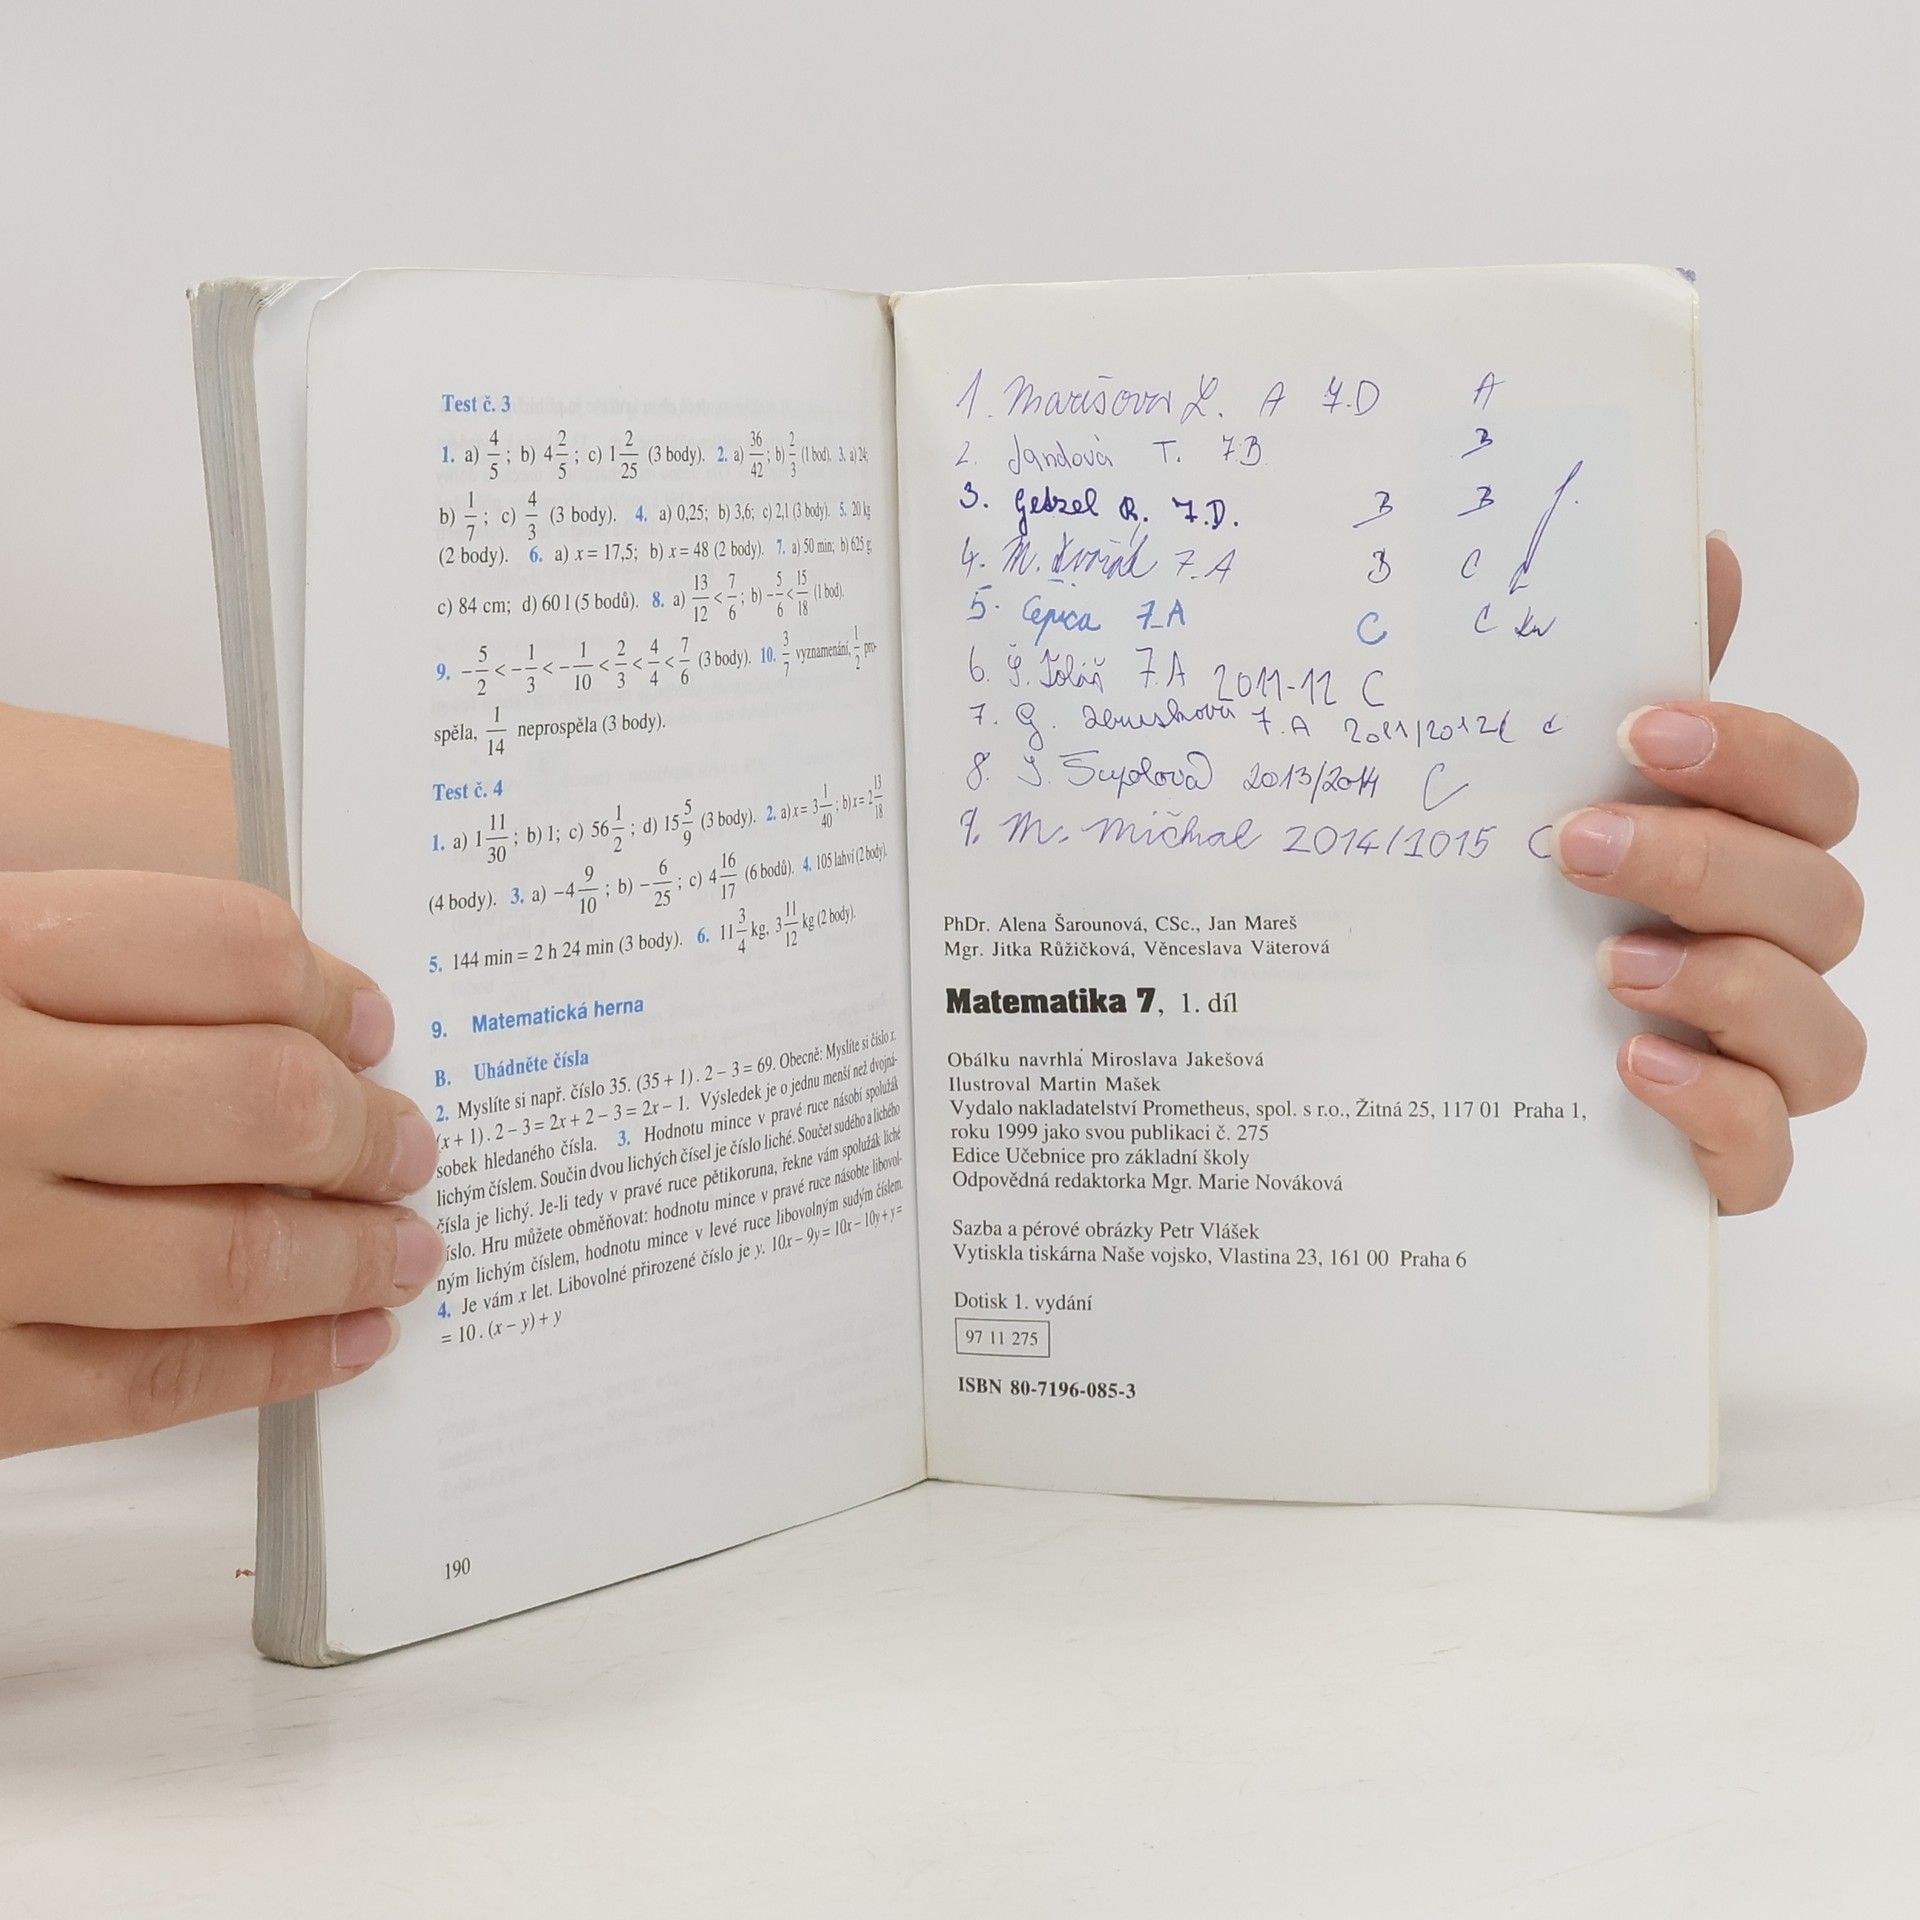 Test č. 3
1. a) 4/5; b) 4 2/5; c) 1 2/25 (3 body). 2. a) 36/42; b) 2/3 (1 bod). 3. a) 24;
b) 1/7; c) 4/3 (3 body). 4. a) 0,25; b) 3,6; c) 2,1 (3 body). 5. 20 kg
(2 body). 6. a) x = 17,5; b) x = 48 (2 body). 7. a) 50 min; b) 625 g;
c) 84 cm; d) 60 l (5 bodů). 8. a) 13/12 < 7/6; b) −5/6 < 15/18 (1 bod).
9. −5/2 < −1/3 < −1/10 < 2/3 < 4/4 < 7/6 (3 body). 10. 3/7 vyznamenání, 1/2 pro-
spěla, 1/14 neprospěla (3 body).
Test č. 4
1. a) 1 11/30; b) 1; c) 56 1/2; d) 15 5/9 (3 body). 2. a) x = 3 1/40; b) x = 2 13/18
(4 body). 3. a) −4 9/10; b) −6/25; c) 4 16/17 (6 bodů). 4. 105 lahví (2 body).
5. 144 min = 2 h 24 min (3 body). 6. 11 3/4 kg, 3 11/12 kg (2 body).
9. Matematická herna
B. Uhádněte čísla
2. Myslíte si např. číslo 35. (35 + 1) . 2 − 3 = 69. Obecně: Myslíte si číslo x.
(x + 1) . 2 − 3 = 2x + 2 − 3 = 2x − 1. Výsledek je o jednu menší než dvojná-
sobek hledaného čísla. 3. Hodnotu mince v pravé ruce násobí spolužák
lichým číslem. Součin dvou lichých čísel je číslo liché. Součet sudého a lichého
čísla je lichý. Je-li tedy v pravé ruce pětikoruna, řekne vám spolužák liché
íslo. Hru můžete obměňovat: hodnotu mince v pravé ruce násobte libovol-
ným lichým číslem, hodnotu mince v levé ruce libovolným sudým číslem.
4. Je vám x let. Libovolné přirozené číslo je y. 10x − 9y = 10x − 10y + y =
= 10 . (x − y) + y
190
1. Marešova L. A 7.D A
2. Jandová T. 7.B B
3. Getzel R. 7.D. B B
4. M. Dvořák 7.A B C
5. Čepica 7.A C C
6. 7.A 2011-12 C
7. G. 7.A 2011/2012
8. 2013/2014 C
9. M. Míchal 2014/1015 C
PhDr. Alena Šarounová, CSc., Jan Mareš
Mgr. Jitka Růžičková, Věnceslava Väterová
Matematika 7, 1. díl
Obálku navrhla Miroslava Jakešová
Ilustroval Martin Mašek
Vydalo nakladatelství Prometheus, spol. s r.o., Žitná 25, 117 01 Praha 1,
roku 1999 jako svou publikaci č. 275
Edice Učebnice pro základní školy
Odpovědná redaktorka Mgr. Marie Nováková
Sazba a pérové obrázky Petr Vlášek
Vytiskla tiskárna Naše vojsko, Vlastina 23, 161 00 Praha 6
Dotisk 1. vydání
97 11 275
ISBN 80-7196-085-3